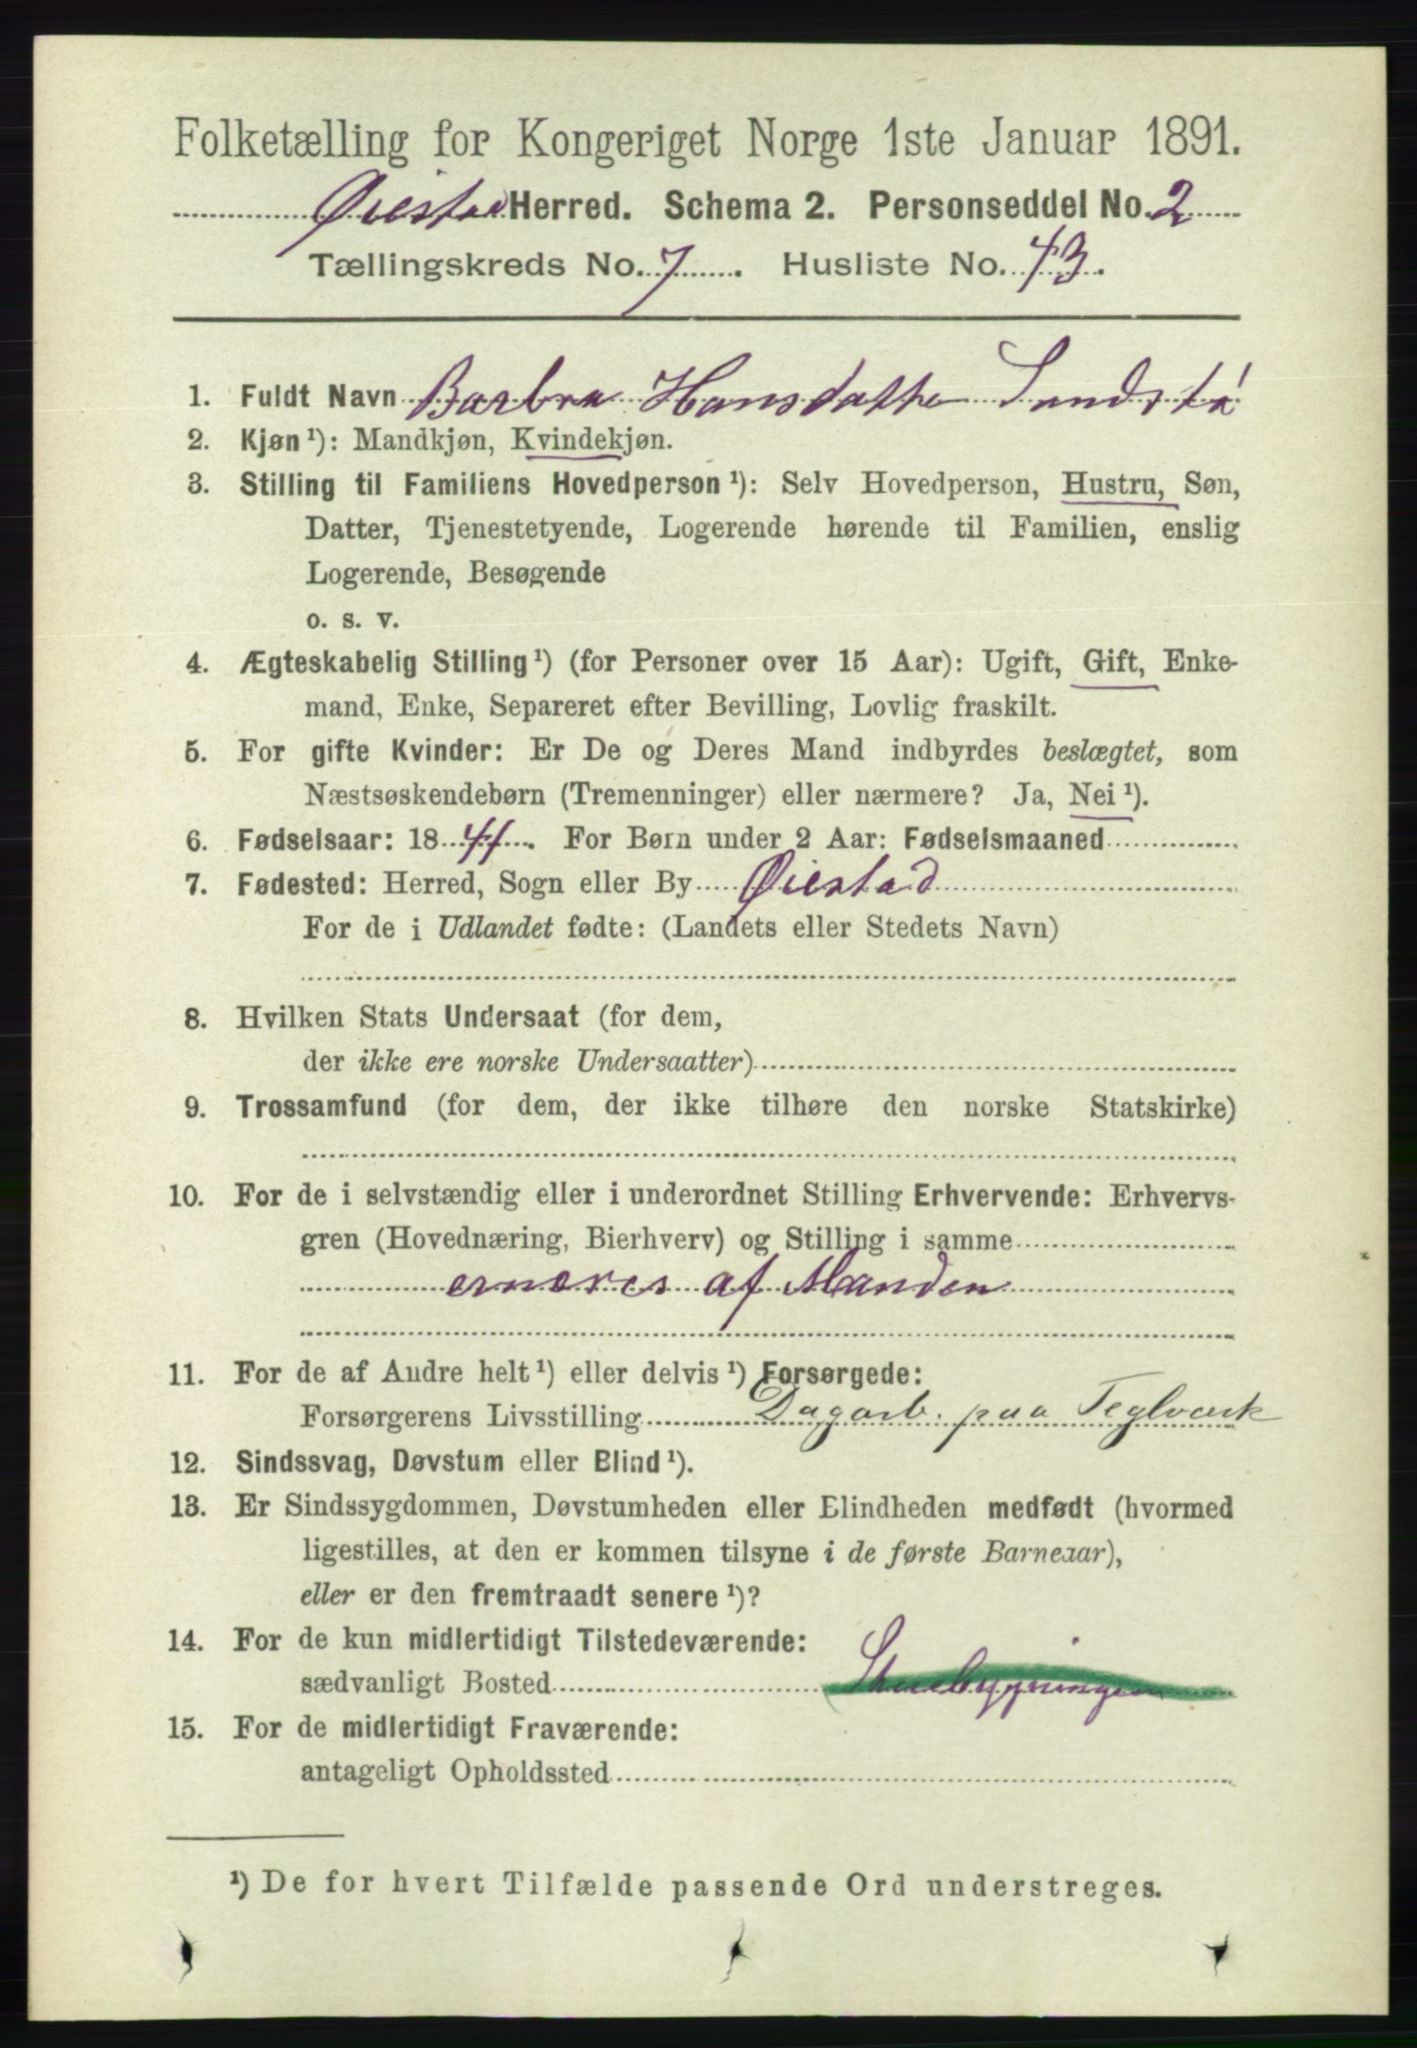 Folketælling for Kongeriget Norge 1ste Januar 1891.
Øiestad Herred. Schema 2. Personseddel No. 2
Tællingskreds No. 7. Husliste No. 43.
1. Fuldt Navn Barbra Hansdatter
2. Kjøn¹): Mandkjøn, Kvindekjøn.
3. Stilling til Familiens Hovedperson¹): Selv Hovedperson, Hustru, Søn,
Datter, Tjenestetyende, Logerende hørende til Familien, enslig
Logerende, Besøgende
o. s. v.
4. Ægteskabelig Stilling¹) (for Personer over 15 Aar): Ugift, Gift, Enke-
mand, Enke, Separeret efter Bevilling, Lovlig fraskilt.
5. For gifte Kvinder: Er De og Deres Mand indbyrdes beslægtet, som
Næstsøskendebørn (Tremenninger) eller nærmere? Ja, Nei¹).
6. Fødselsaar: 1841. For Børn under 2 Aar: Fødselsmaaned
7. Fødested: Herred, Sogn eller By Øiestad
For de i Udlandet fødte: (Landets eller Stedets Navn)
8. Hvilken Stats Undersaat (for dem,
der ikke ere norske Undersaatter)
9. Trossamfund (for dem, der ikke tilhøre den norske Statskirke)
10. For de i selvstændig eller i underordnet Stilling Erhvervende: Erhvervs-
gren (Hovednæring, Bierhverv) og Stilling i samme
ernæres af Manden
11. For de af Andre helt¹) eller delvis¹) Forsørgede:
Forsørgerens Livsstilling Dagarb. paa Teglværk
12. Sindssvag, Døvstum eller Blind¹).
13. Er Sindssygdommen, Døvstumheden eller Blindheden medfødt (hvormed
ligestilles, at den er kommen tilsyne i de første Barneaar),
eller er den fremtraadt senere¹)?
14. For de kun midlertidigt Tilstedeværende:
sædvanligt Bosted Stuebygningen
15. For de midlertidigt Fraværende:
antageligt Opholdssted
¹) De for hvert Tilfælde passende Ord understreges.